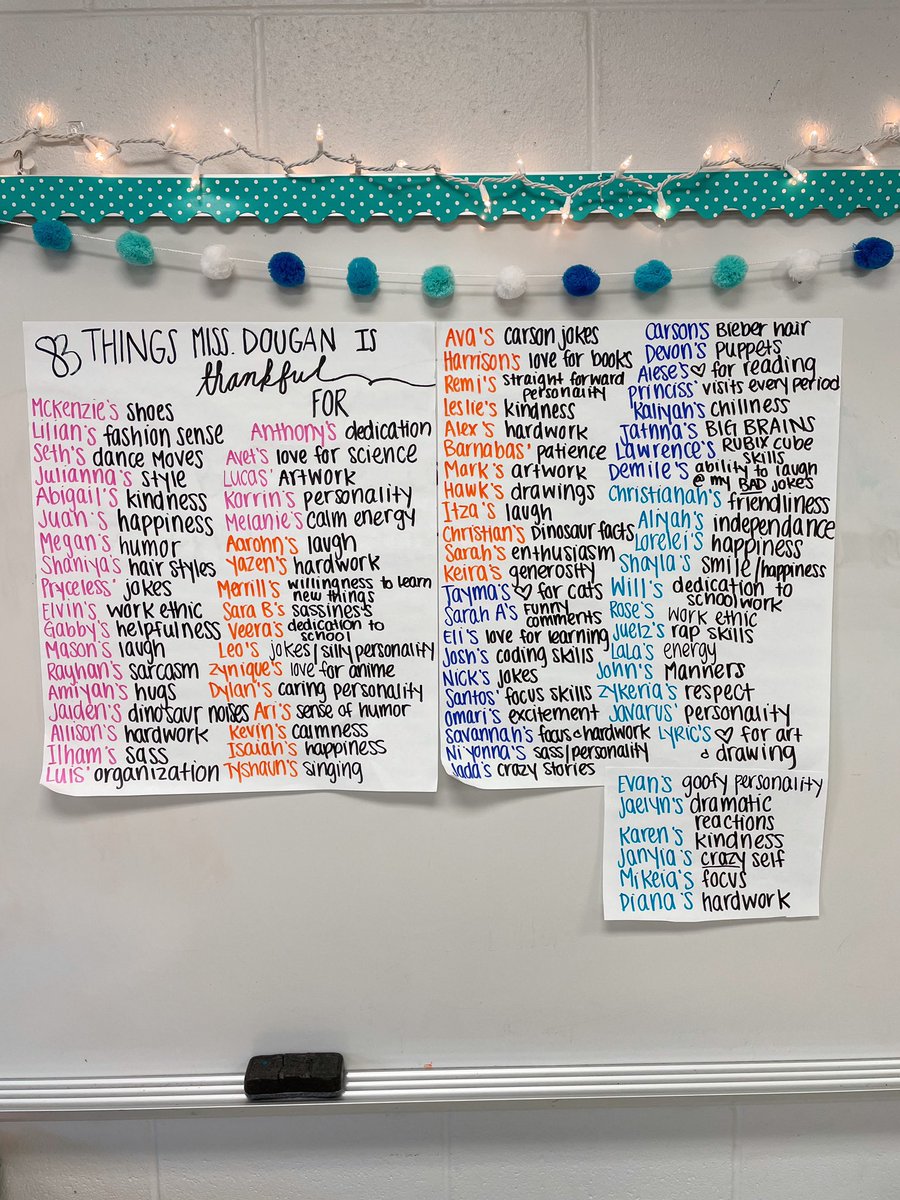 83 THINGS MISS. DOUGAN IS
thankful
FOR
McKenzie's shoes
Lilian's fashion sense
Seth's dance moves
Julianna's style
Abigail's kindness
Juan's happiness
Megan's humor
Shaniya's hair styles
Pryceless' jokes
Elvin's work ethic
Gabby's helpfulness
Mason's laugh
Rayhan's sarcasm
Amiyah's hugs
Jaiden's dinosaur noises
Allison's hardwork
Ilham's sass
Luis' organization
Anthony's dedication
Avet's love for science
Lucas' Artwork
Korrin's personality
Melanie's calm energy
Aarohn's laugh
Yazen's hardwork
Merrill's willingness to learn
new things
Sara B's sassiness
Veera's dedication to
school
Leo's jokes/silly personality
Zynique's love for anime
Dylan's caring personality
Ari's sense of humor
Kevin's calmness
Isaiah's happiness
Tyshaun's singing
Ava's carson jokes
Harrison's love for books
Remi's straight forward
personality
Leslie's kindness
Alex's hardwork
Barnabas' patience
Mark's artwork
Hawk's drawings
Itza's laugh
Christian's Dinosaur facts
Sarah's enthusiasm
Keira's generosity
Jayma's ♡ for cats
Sarah A's funny
comments
Eli's love for learning
Josh's coding skills
Nick's jokes
Santos' focus skills
Omari's excitement
Savannah's focus & hardwork
Ni'yonna's sass/personality
Jada's crazy stories
Carson's Bieber hair
Devon's Puppets
Aiese's ♡ for reading
Princiss' visits every period
Kaliyah's chillness
Jatnna's BIG BRAINS
Lawrence's RUBIX cube
skills
Demile's ability to laugh
@ my BAD jokes
Christianah's friendliness
Aliyah's independance
Lorelei's happiness
Shayla's smile/happiness
Will's dedication to
schoolwork
Rose's work ethic
Juelz's rap skills
Lala's energy
John's Manners
Zykeria's respect
Javarus' personality
Lyric's ♡ for art
& drawing
Evan's goofy personality
Jaelyn's dramatic
reactions
Karen's kindness
Janyia's crazy self
Mikeia's focus
Diana's hardwork